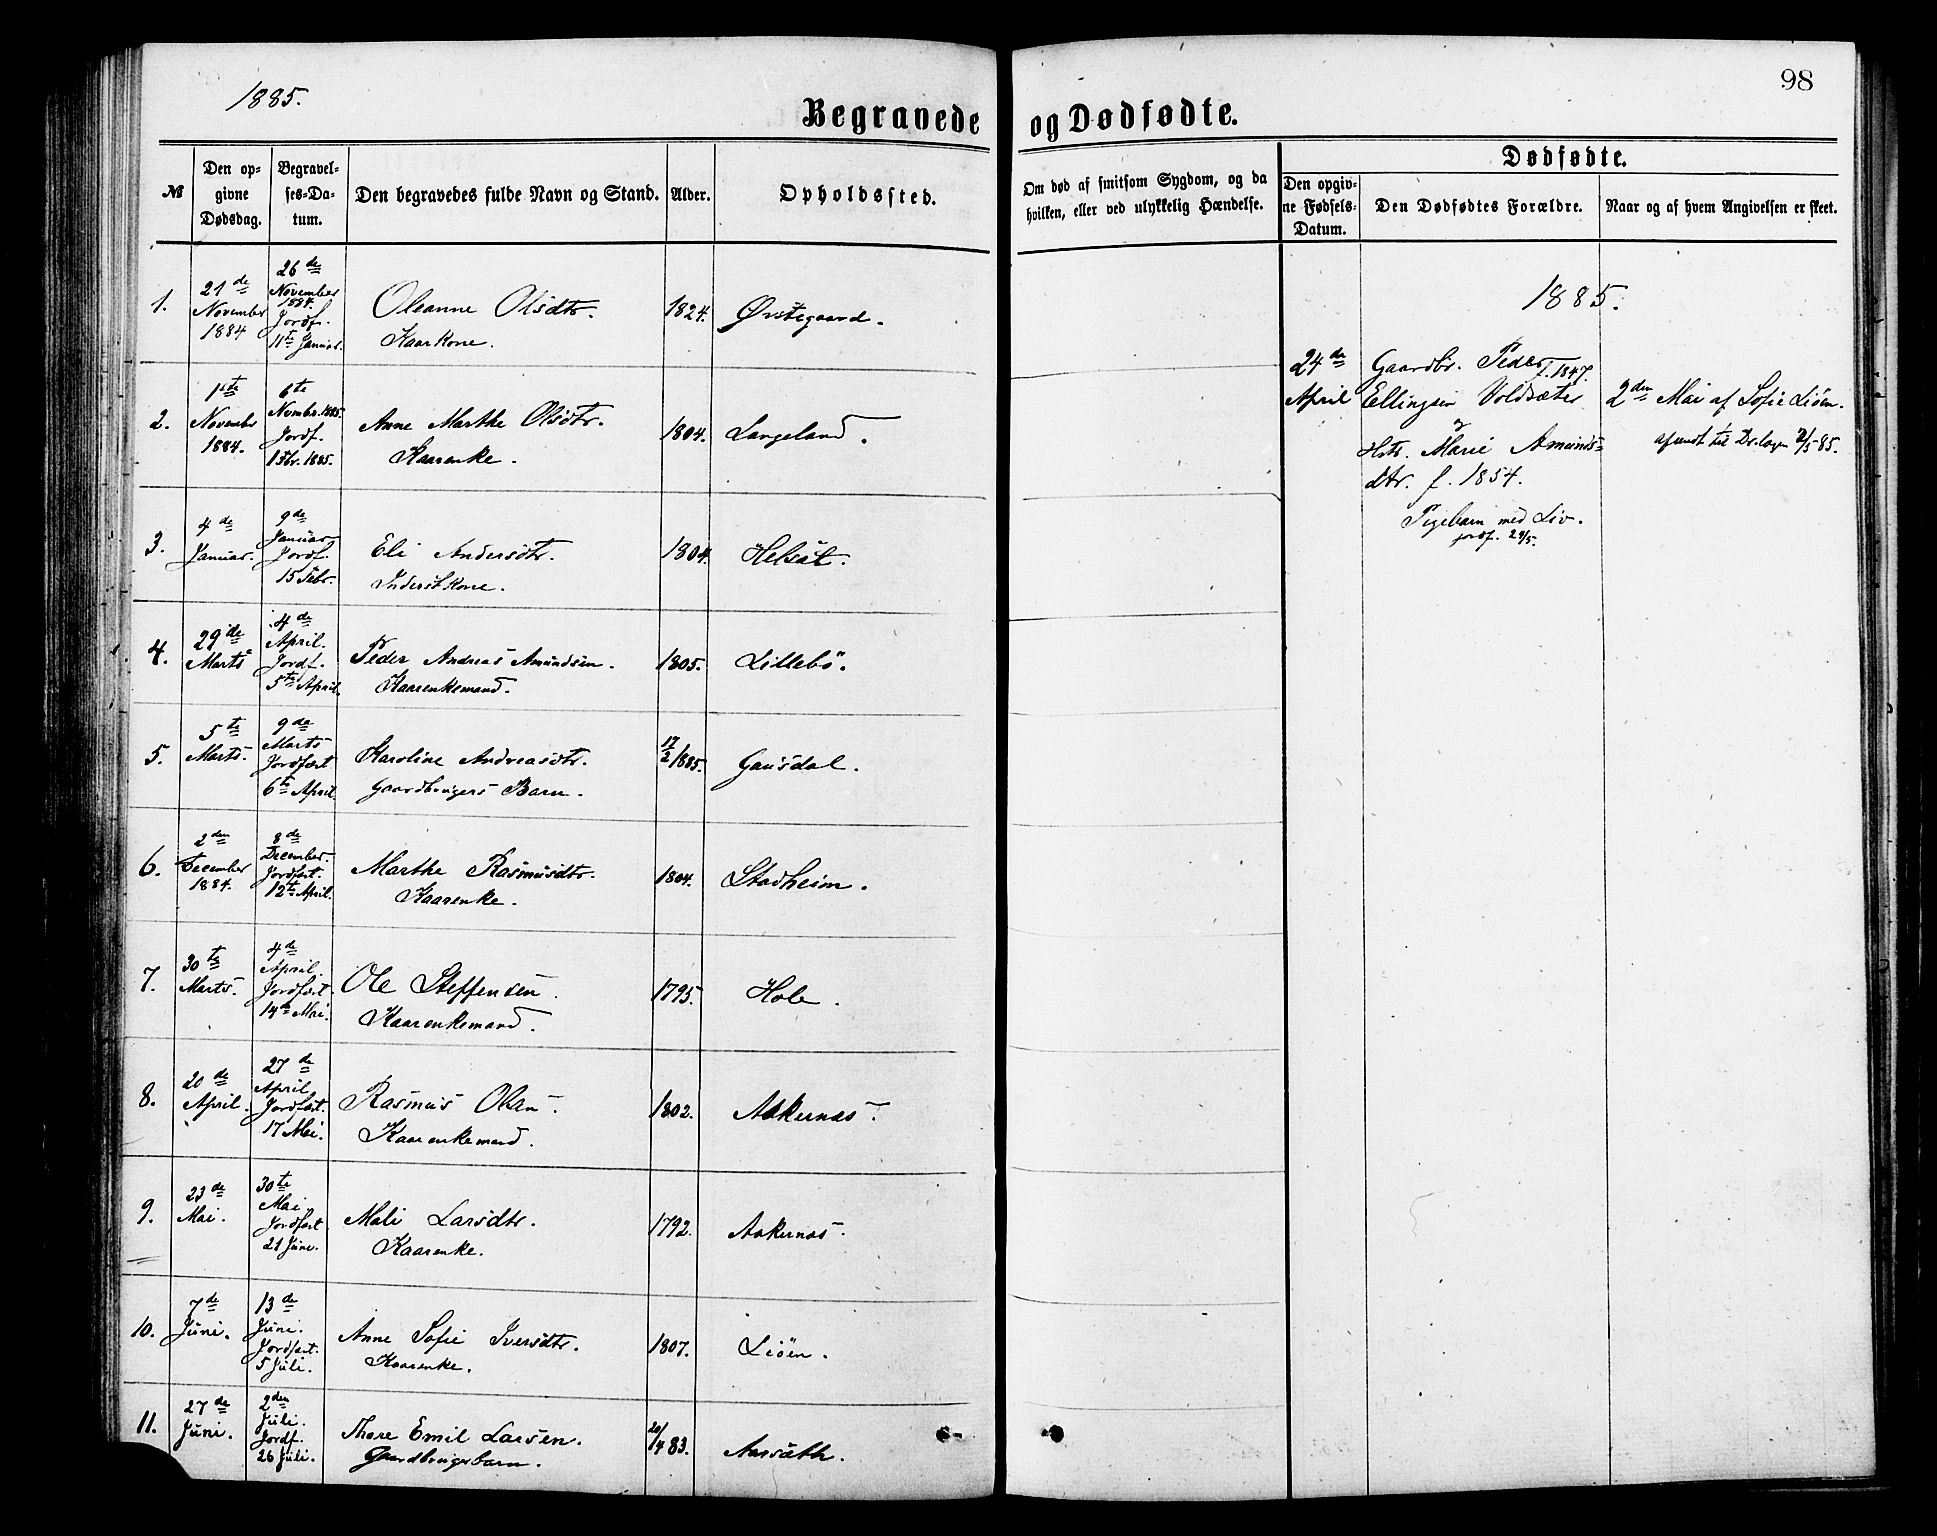 1885.
98
Begravede og Dødfødte.
№
Den opgivne Dødsdag.
Begravelses-Datum.
Den begravedes fulde Navn og Stand.
Alder.
Opholdssted.
Om død af smitsom Sygdom, og da hvilken, eller ved ulykkelig Hændelse.
Dødfødte.
Den opgivne Fødsels-Datum.
Den Dødfødtes Forældre.
Naar og af hvem Angivelsen er skeet.
1.
21de
November
1884
26de
November
1884.
Jordf.
11te Januar.
Oleanne Olsdtr.
Kaarkone.
1824.
Østegaard.
2.
1ste
Novembr
1884.
6te
Novembr. 1885.
Jordf.
1 Fbr. 1885.
Anne Marthe Olsdtr.
Kaarenke.
1804.
Langeland.
3.
4de
Januar.
9de
Januar
Jordf.
15 Febr.
Eli Andersdtr.
Inderstkone.
1804.
Helsät.
4.
29de
Marts
4de
April.
Jordf.
5te April.
Peder Andreas Amundsen.
Kaarenkemand.
1805.
Lillebö.
5.
5te
Marts.
9de
Marts
Jordfæst
6te April
Karoline Andreasdtr.
Gaardbrugers Barn.
17/2 1885.
Gausdal.
6.
2den
December
1884.
8de
December.
Jordfæst.
12te April.
Marthe Rasmusdtr.
Kaarenke.
1804.
Stadheim.
7.
30te
Marts.
4de
April.
Jordfæst
14de Mai.
Ole Steffensen.
Kaarenkemand.
1795.
Hole.
8.
20de
April.
27de
April
Jordfæst.
17 Mai.
Rasmus Olsen.
Kaarenkemand.
1802.
Aakernæs.
9.
23de
Mai.
30te
Mai
Jordfæst
21 Juni.
Mali Larsdtr.
Kaarenke.
1792.
Aakernæs.
10.
7de
Juni.
13de
Juni.
Jordfæst.
5 Juli.
Anne Sofie Iversdtr.
Kaarenke.
1807.
Liöen.
11.
27de
Juni.
2den
Juli.
Jordf.
26 Juli.
Thore Emil Larsen.
Gaardbrugerbarn.
20/4 83.
Aarsæth.
1885.
24de
April
Gaardbr. Peder
f. 1847.
Ellingsen Voldsæter
og
Hstr. Marie Amunds-
dtr. f. 1854.
Pigebarn med Liv.
jordf. 29/5.
2den Mai af Sofie Liöen.
afsendt til Dr.